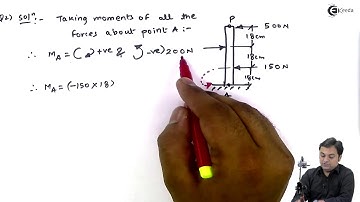 Q2) Solⁿ:- Taking moments of all the
forces about point A :-
∴ M_A = (↻ +ve & ↺ -ve)
∴ M_A = (-150 × 18)
P
500N
18cm
200N
18cm
150N
18cm
A
Ekeeda